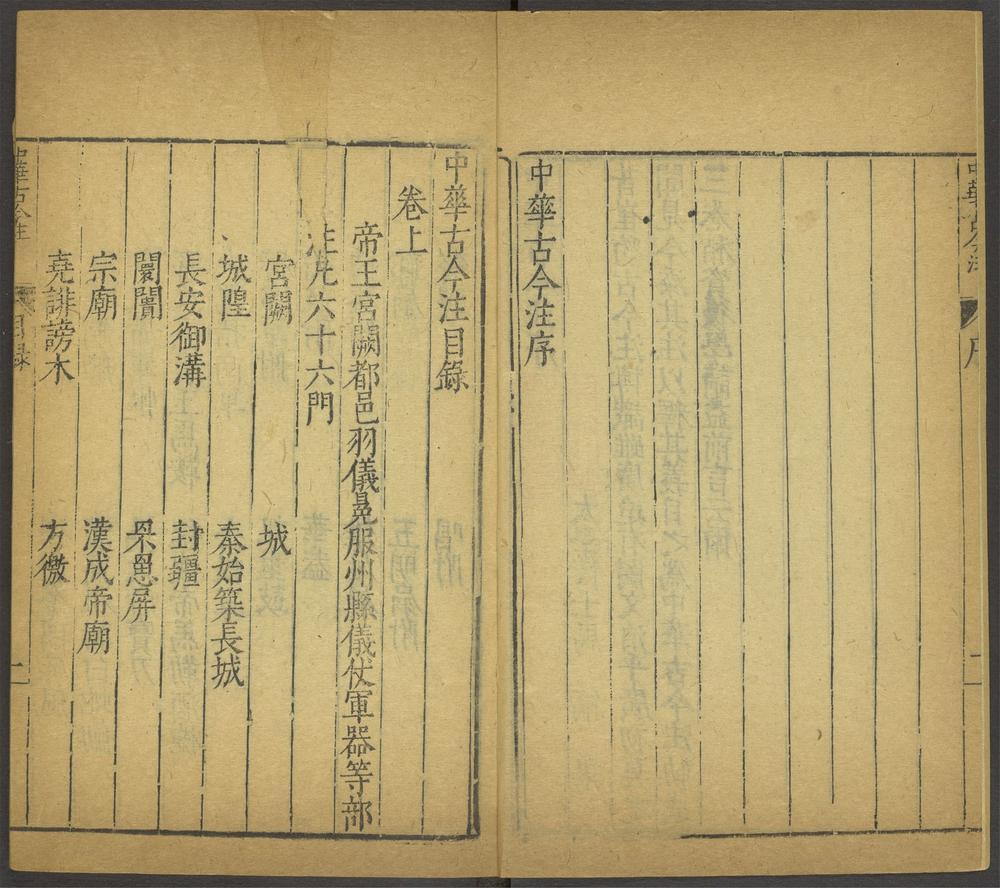 中華古今注 序
中華古今注序
中華古今注目錄
卷上
帝王宮闕都邑羽儀冕服州縣儀仗軍器等部
注凡六十六門
宮闕 城
城隍 秦始築長城
長安御溝 封疆
闤闠 罘罳屏
宗廟 漢成帝廟
堯誹謗木 方徼
中華古今注 目錄 一